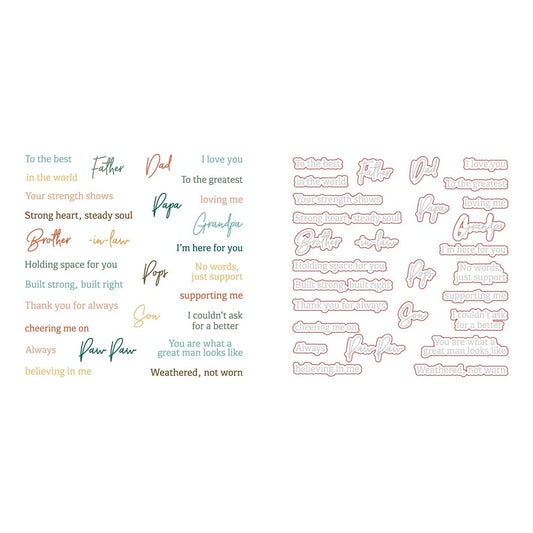 To the best
Father
Dad
I love you
in the world
To the greatest
Your strength shows
Papa
loving me
Strong heart, steady soul
Grandpa
Brother
-in-law
I'm here for you
Holding space for you
Pops
No words,
just support
Built strong, built right
supporting me
Thank you for always
Son
I couldn't ask
for a better
cheering me on
Always
Paw Paw
You are what a
great man looks like
believing in me
Weathered, not worn
To the best
Father
Dad
I love you
in the world
To the greatest
Your strength shows
Papa
loving me
Strong heart, steady soul
Grandpa
Brother
-in-law
I'm here for you
Holding space for you
Pops
No words,
just support
Built strong, built right
supporting me
Thank you for always
Son
I couldn't ask
for a better
cheering me on
Always
Paw Paw
You are what a
great man looks like
believing in me
Weathered, not worn